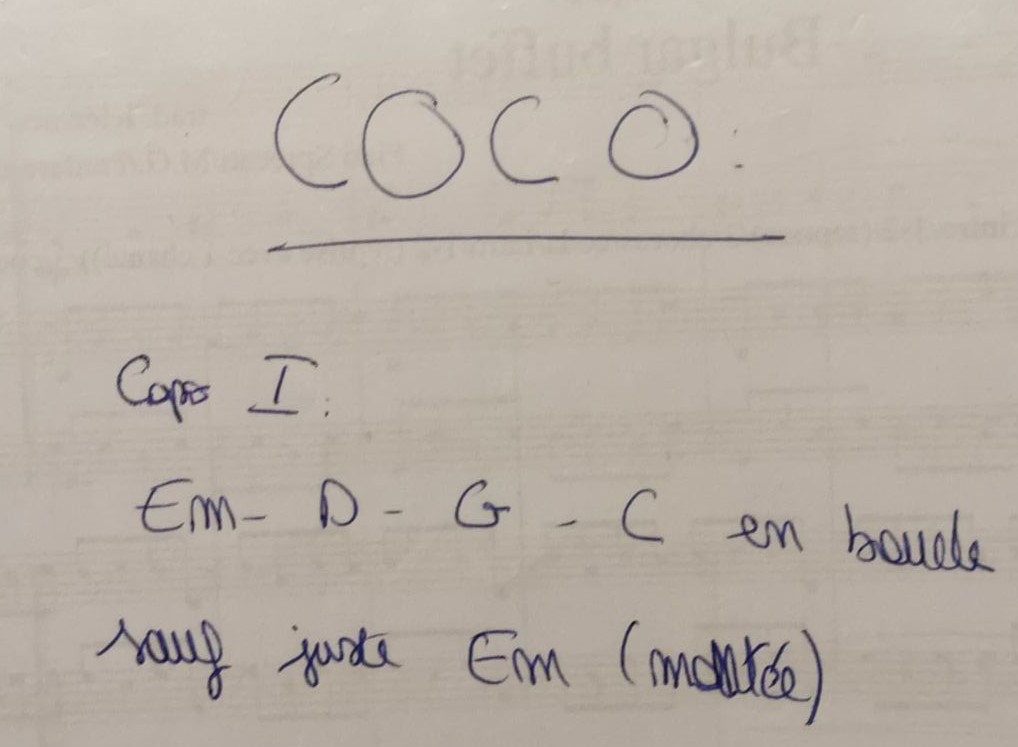 COCO:
Capo I:
Em - D - G - C en boucle
sauf juste Em (montée)